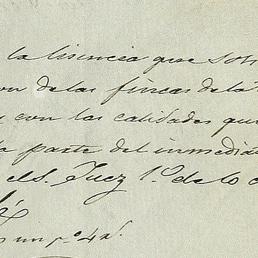 la lisencia que soli
on de las fincas de la
y con las calidades que
la parte del inmedia
el S. Juez 1º de lo c